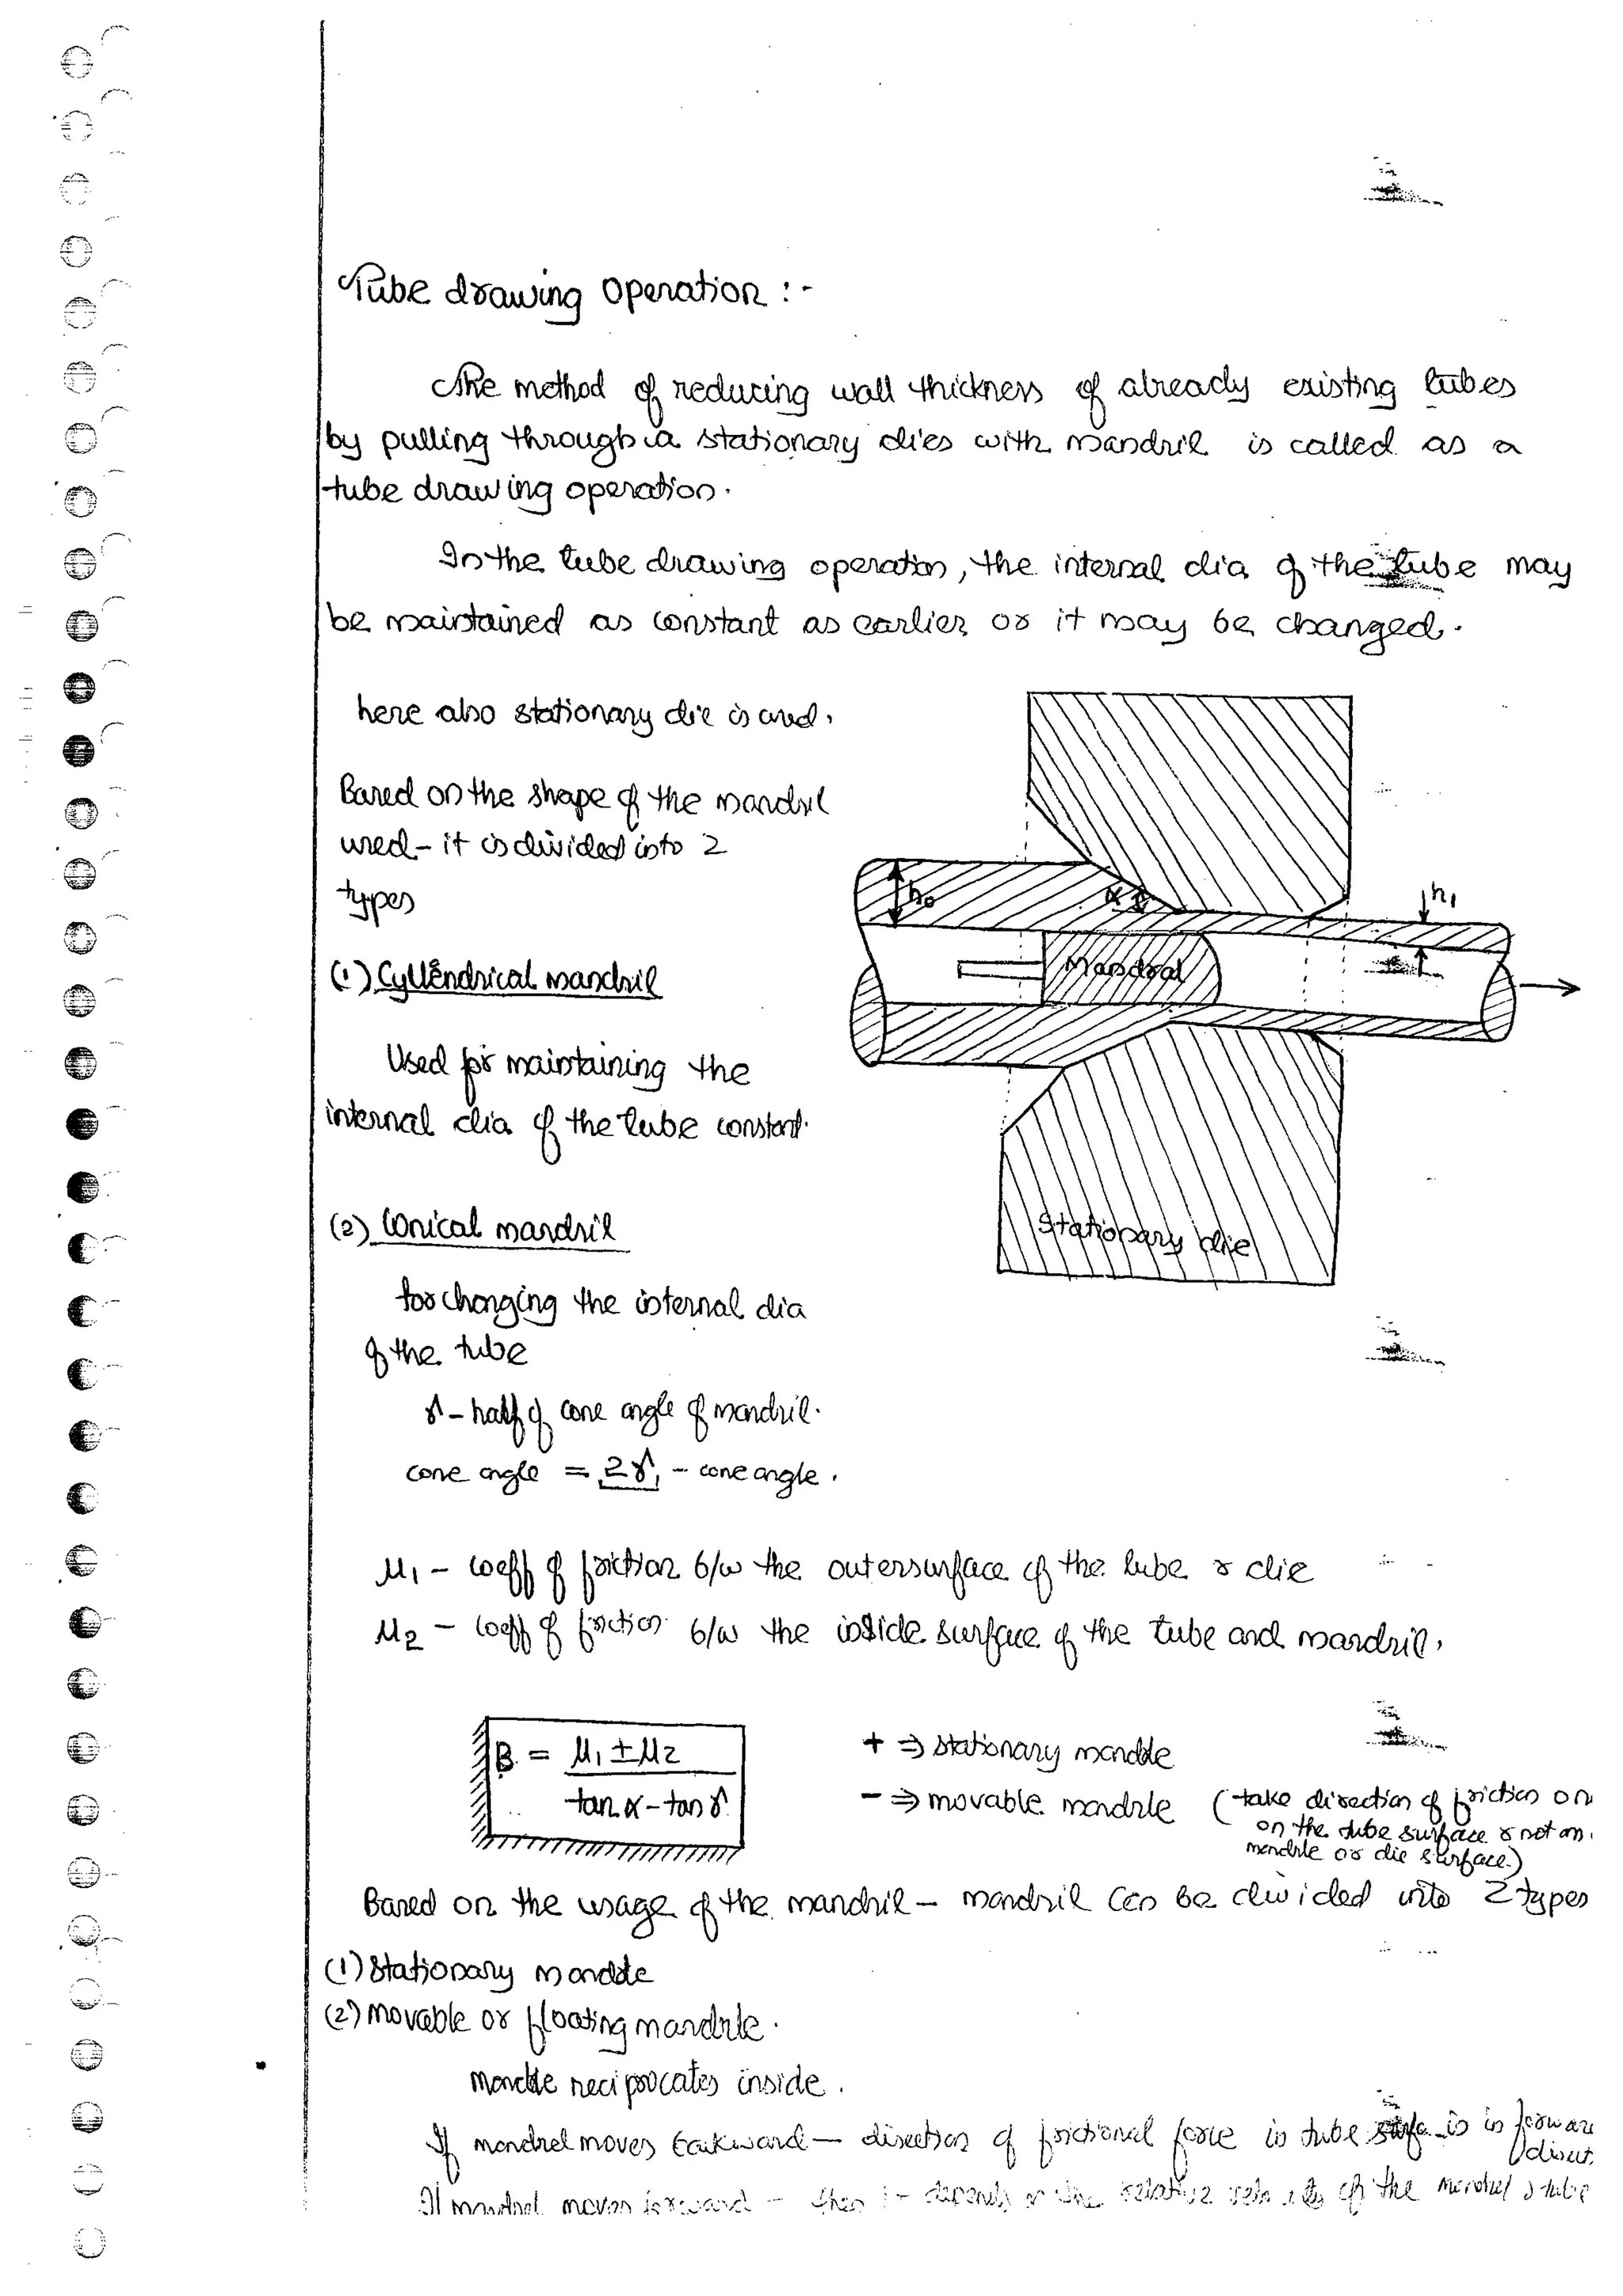 Tube drawing operation :-
The method of reducing wall thickness of already existing tubes
by pulling through a stationary dies with mandril is called as a
tube drawing operation.
In the tube drawing operation, the internal dia of the tube may
be maintained as constant as earlier or it may be changed.
here also stationary die is used.
Based on the shape of the mandril
used - it is divided into 2
types
h₀
α
h₁
Mandral
(1) Cyllendrical mandril
Used for maintaining the
internal dia of the tube constant.
Stationary die
(2) Conical mandril
for changing the internal dia
of the tube
γ - half of cone angle of mandril.
cone angle = 2γ, - cone angle.
μ₁ - coeff of friction b/w the outersurface of the tube & die
μ₂ - coeff of friction b/w the inside surface of the tube and mandril.
B = μ₁ ± μ₂
tan α - tan γ
+ ⇒ stationary mandle
- ⇒ movable mandrle (take direction of friction on
on the tube surface & not on
mandrle or die surface.)
Based on the usage of the mandril - mandril can be divided into 2 types
(1) Stationary mandle
(2) movable or floating mandrle.
mandle reciprocates inside.
If mandrel moves backward - direction of frictional force in tube is in forward
direct.
If mandrel moves forward - then it depends on the relative velocity of the mandrel & tube